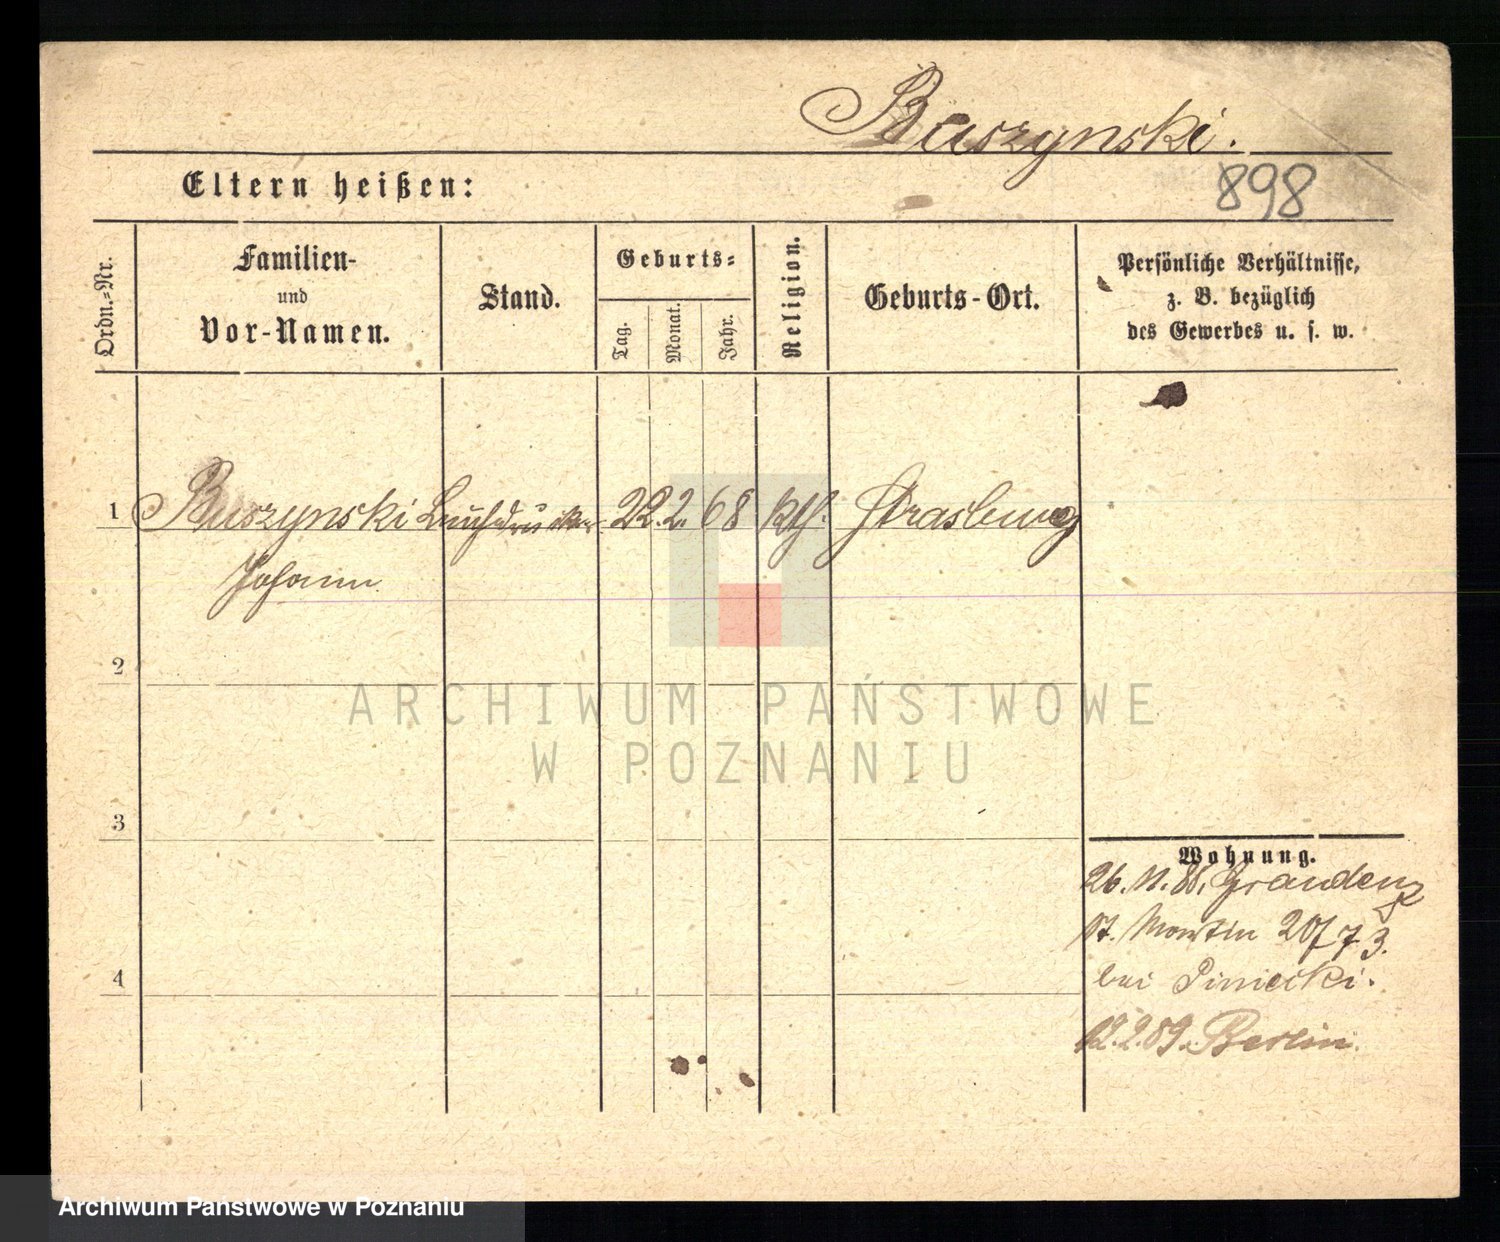 Buszynski.
898
Eltern heißen:
Ordn.-Nr.
Familien-
und
Vor-Namen.
Stand.
Geburts-
Tag.
Monat.
Jahr.
Religion.
Geburts-Ort.
Persönliche Verhältnisse,
z. B. bezüglich
des Gewerbes u. s. w.
1 Buszynski Buchdrucker 22. 2. 68 kth. Strasburg
Johann
2
3
4
Wohnung.
26. 11. 88. Graudenz
St. Martin 20/73.
bei Piniecki.
12.2.89. Berlin.
ARCHIWUM PAŃSTWOWE
W POZNANIU
Archiwum Państwowe w Poznaniu